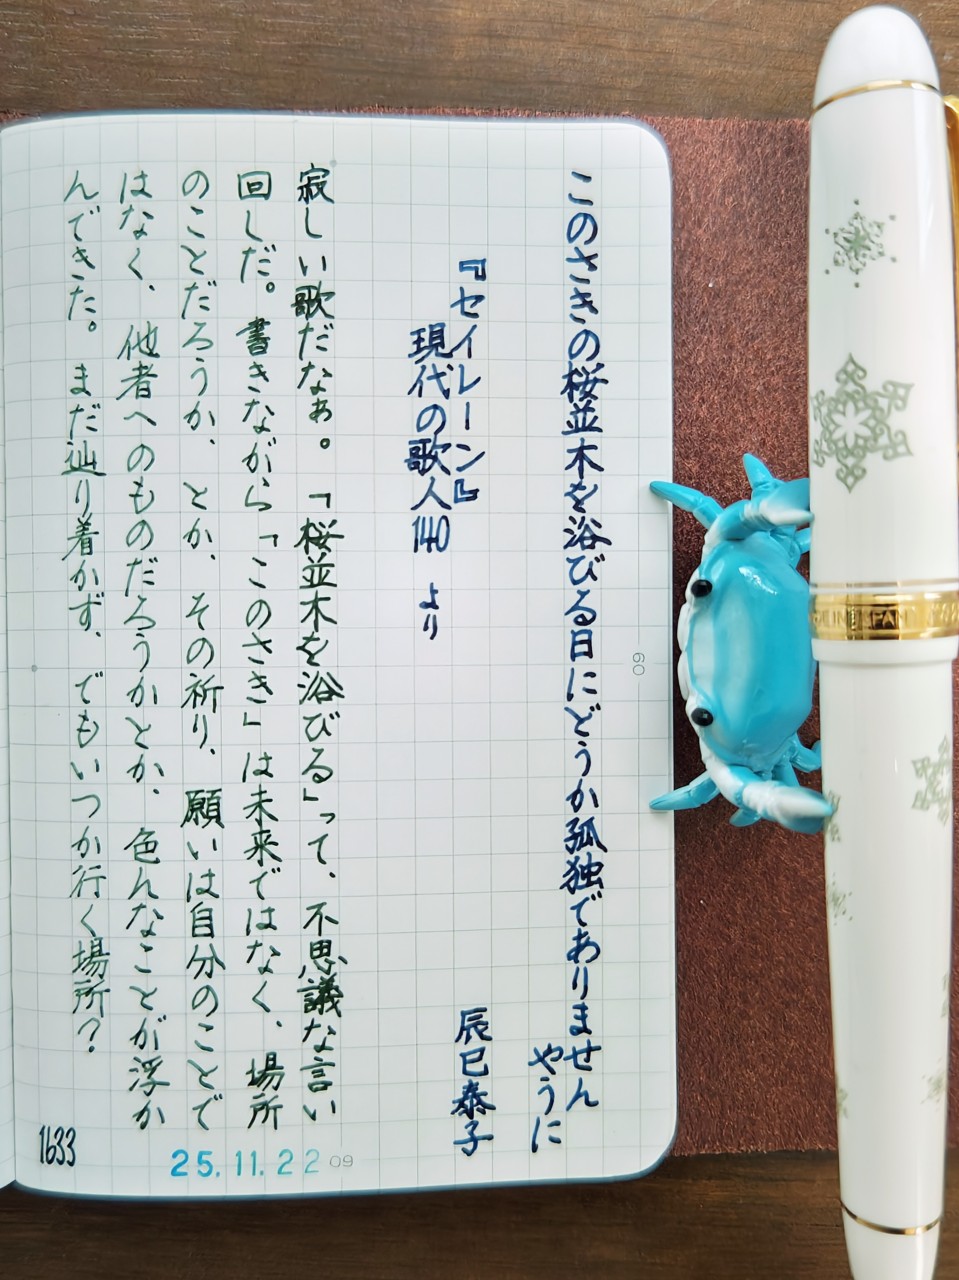 このさきの桜並木を浴びる日にどうか孤独でありません
やうに
『セイレーン』
辰巳泰子
現代の歌人140 より
寂しい歌だなぁ。「桜並木を浴びる」って、不思議な言い
回しだ。書きながら「このさき」は未来ではなく、場所
のことだろうか、とか、その祈り、願いは自分のことで
はなく、他者へのものだろうかとか、色んなことが浮か
んできた。まだ辿り着かず、でもいつか行く場所?
1633
25.11.22
09
09